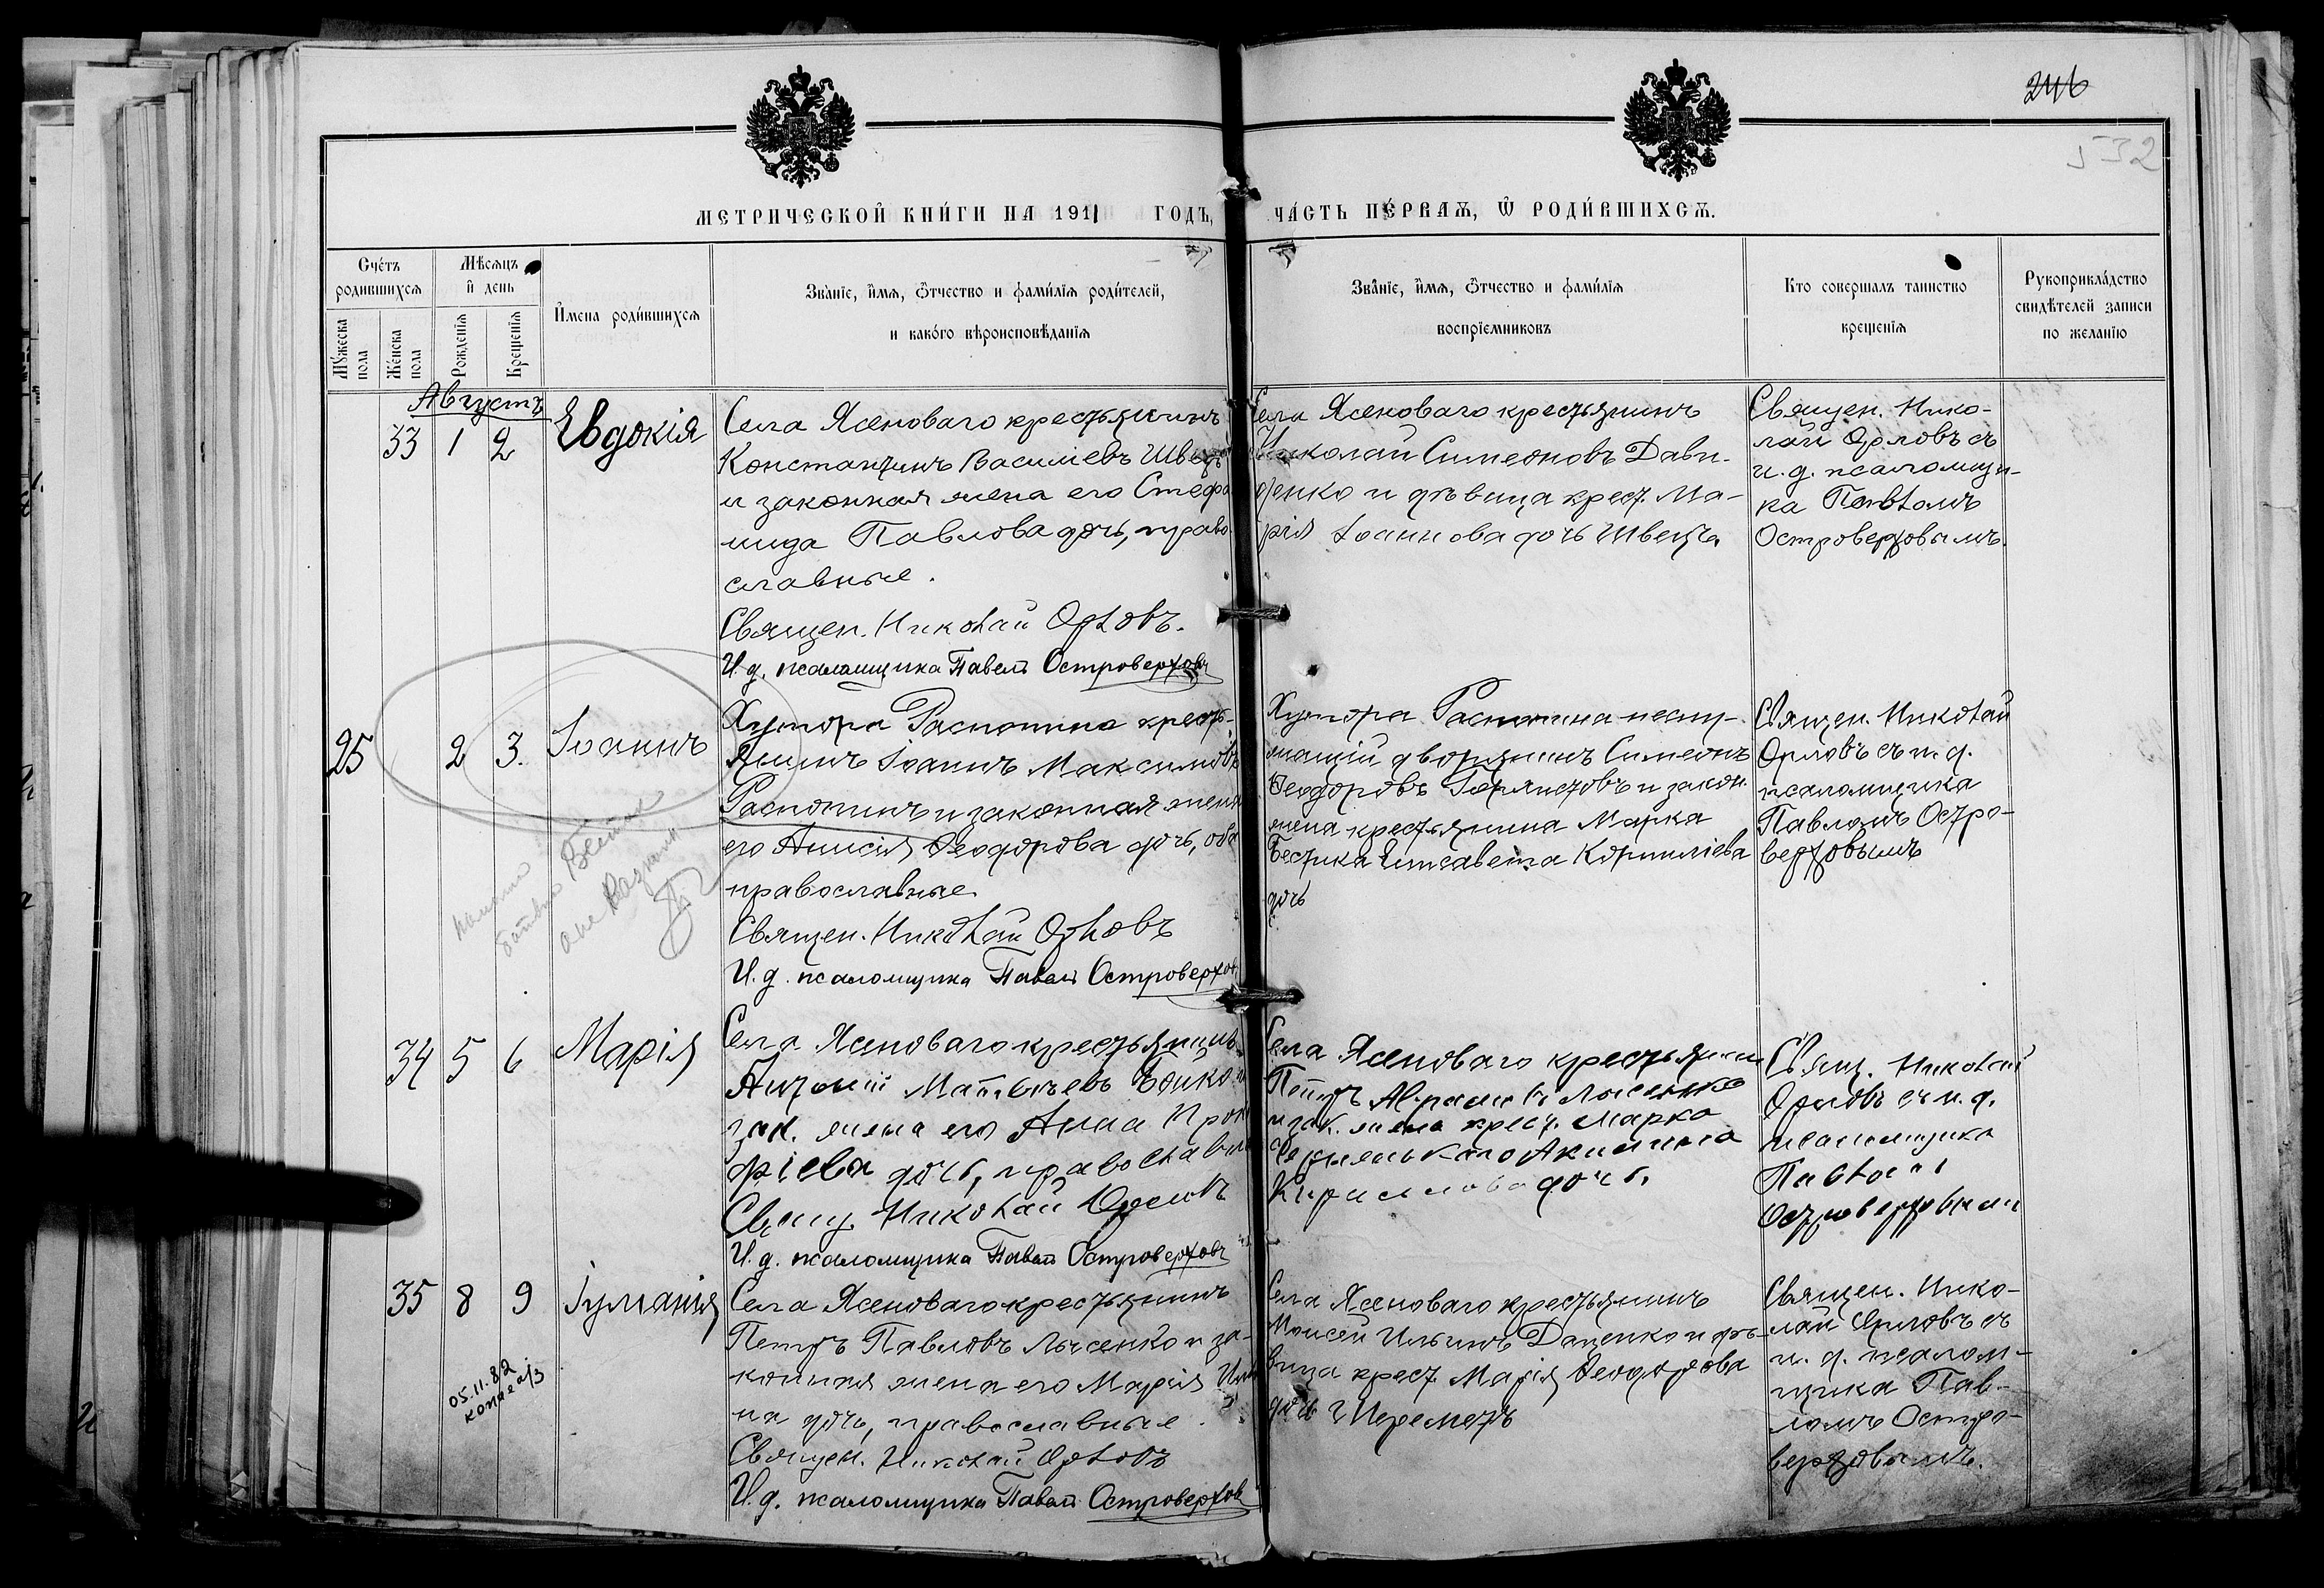 246
532
МЕТРИЧЕСКОЙ КНИ́ГИ НА 1911 ГОДЪ,
ЧА́СТЬ ПЕ́РВАѦ, Ѡ҆ РОДИ́ВШИХСѦ.
Сче́тъ
родившихсѧ
Мѣ́сѧцъ
и҆ день
И҆мена роди́вшихсѧ
Зва́нїе, и҆́мѧ, ѻ҆́тчество и фами́лїѧ роди́телей,
и како́го вѣроисповѣ́данїѧ
Мꙋ́жеска
пола
Же́нска
пола
Рожденїѧ
Крещенїѧ
Зва́нїе, и҆́мѧ, ѻ҆́тчество и фами́лїѧ
воспрїе́мниковъ
Кто совершалъ таинство
крещенїѧ
Рукоприкла́дство
свидѣтелей записи
по желанїю
Августъ
33 1 2 Евдокія
Села Ясеноваго крестьянинъ
Константинъ Василіевъ Швецъ
и законная жена его Стефа
нида Павлова дочь, право
славные.
Священ. Николай Орловъ.
И. д. псаломщика Павелъ Островерховъ
Села Ясеноваго крестьянинъ
Николай Симеоновъ Дави-
денко и дѣвица крест. Ма-
рія Іоаннова дочь Швецъ
Священ. Нико-
лай Орловъ съ
и. д. псаломщи-
ка Павломъ
Островерховымъ.
25 2 3. Іоаннъ
Хутора Распопина кресть-
янинъ Іоаннъ Максимовъ
Распопинъ и законная жена
его Анисія Ѳеодорова дочь, оба
православные
Священ. Николай Орловъ
И. д. псаломщика Павелъ Островерхов
Хутора Распопина неслу-
жащій дворянинъ Симеонъ
Ѳеодоровъ и закон.
жена крестьянина Марка
Елисавета Корниліева
дочь
Священ. Николай
Орловъ съ и. д.
псаломщика
Павломъ Остро-
верховымъ
34 5 6 Марія
Села Ясеноваго крестьянинъ
Антоній Матвѣевъ Бойко и
зак. жена его Анна
дочь, православные
Свящ. Николай Орловъ
И. д. псаломщика Павелъ Островерховъ
Села Ясеноваго крестьянин
Петръ Лысенко
и зак. жена крест. Марка
Акилина
Кириллова дочь.
Свящ. Николай
Орловъ съ и. д.
псаломщика
Павломъ
Островерховым
35 8 9 Іуліанія
05.11.82
копия а/з
Села Ясеноваго крестьянинъ
Петръ Павловъ Лысенко и за-
конная жена его Марія Ильи
на дочь, православные.
Священ. Николай Орловъ
И. д. псаломщика Павелъ Островерхов
Села Ясеноваго крестьянинъ
Моисей Ильинъ Даценко и дѣ-
вица крест. Марія Ѳеодорова
дочь Череметъ
Священ. Нико-
лай Орловъ съ
и. д. псалом-
щика Пав-
ломъ Остро-
верховымъ.